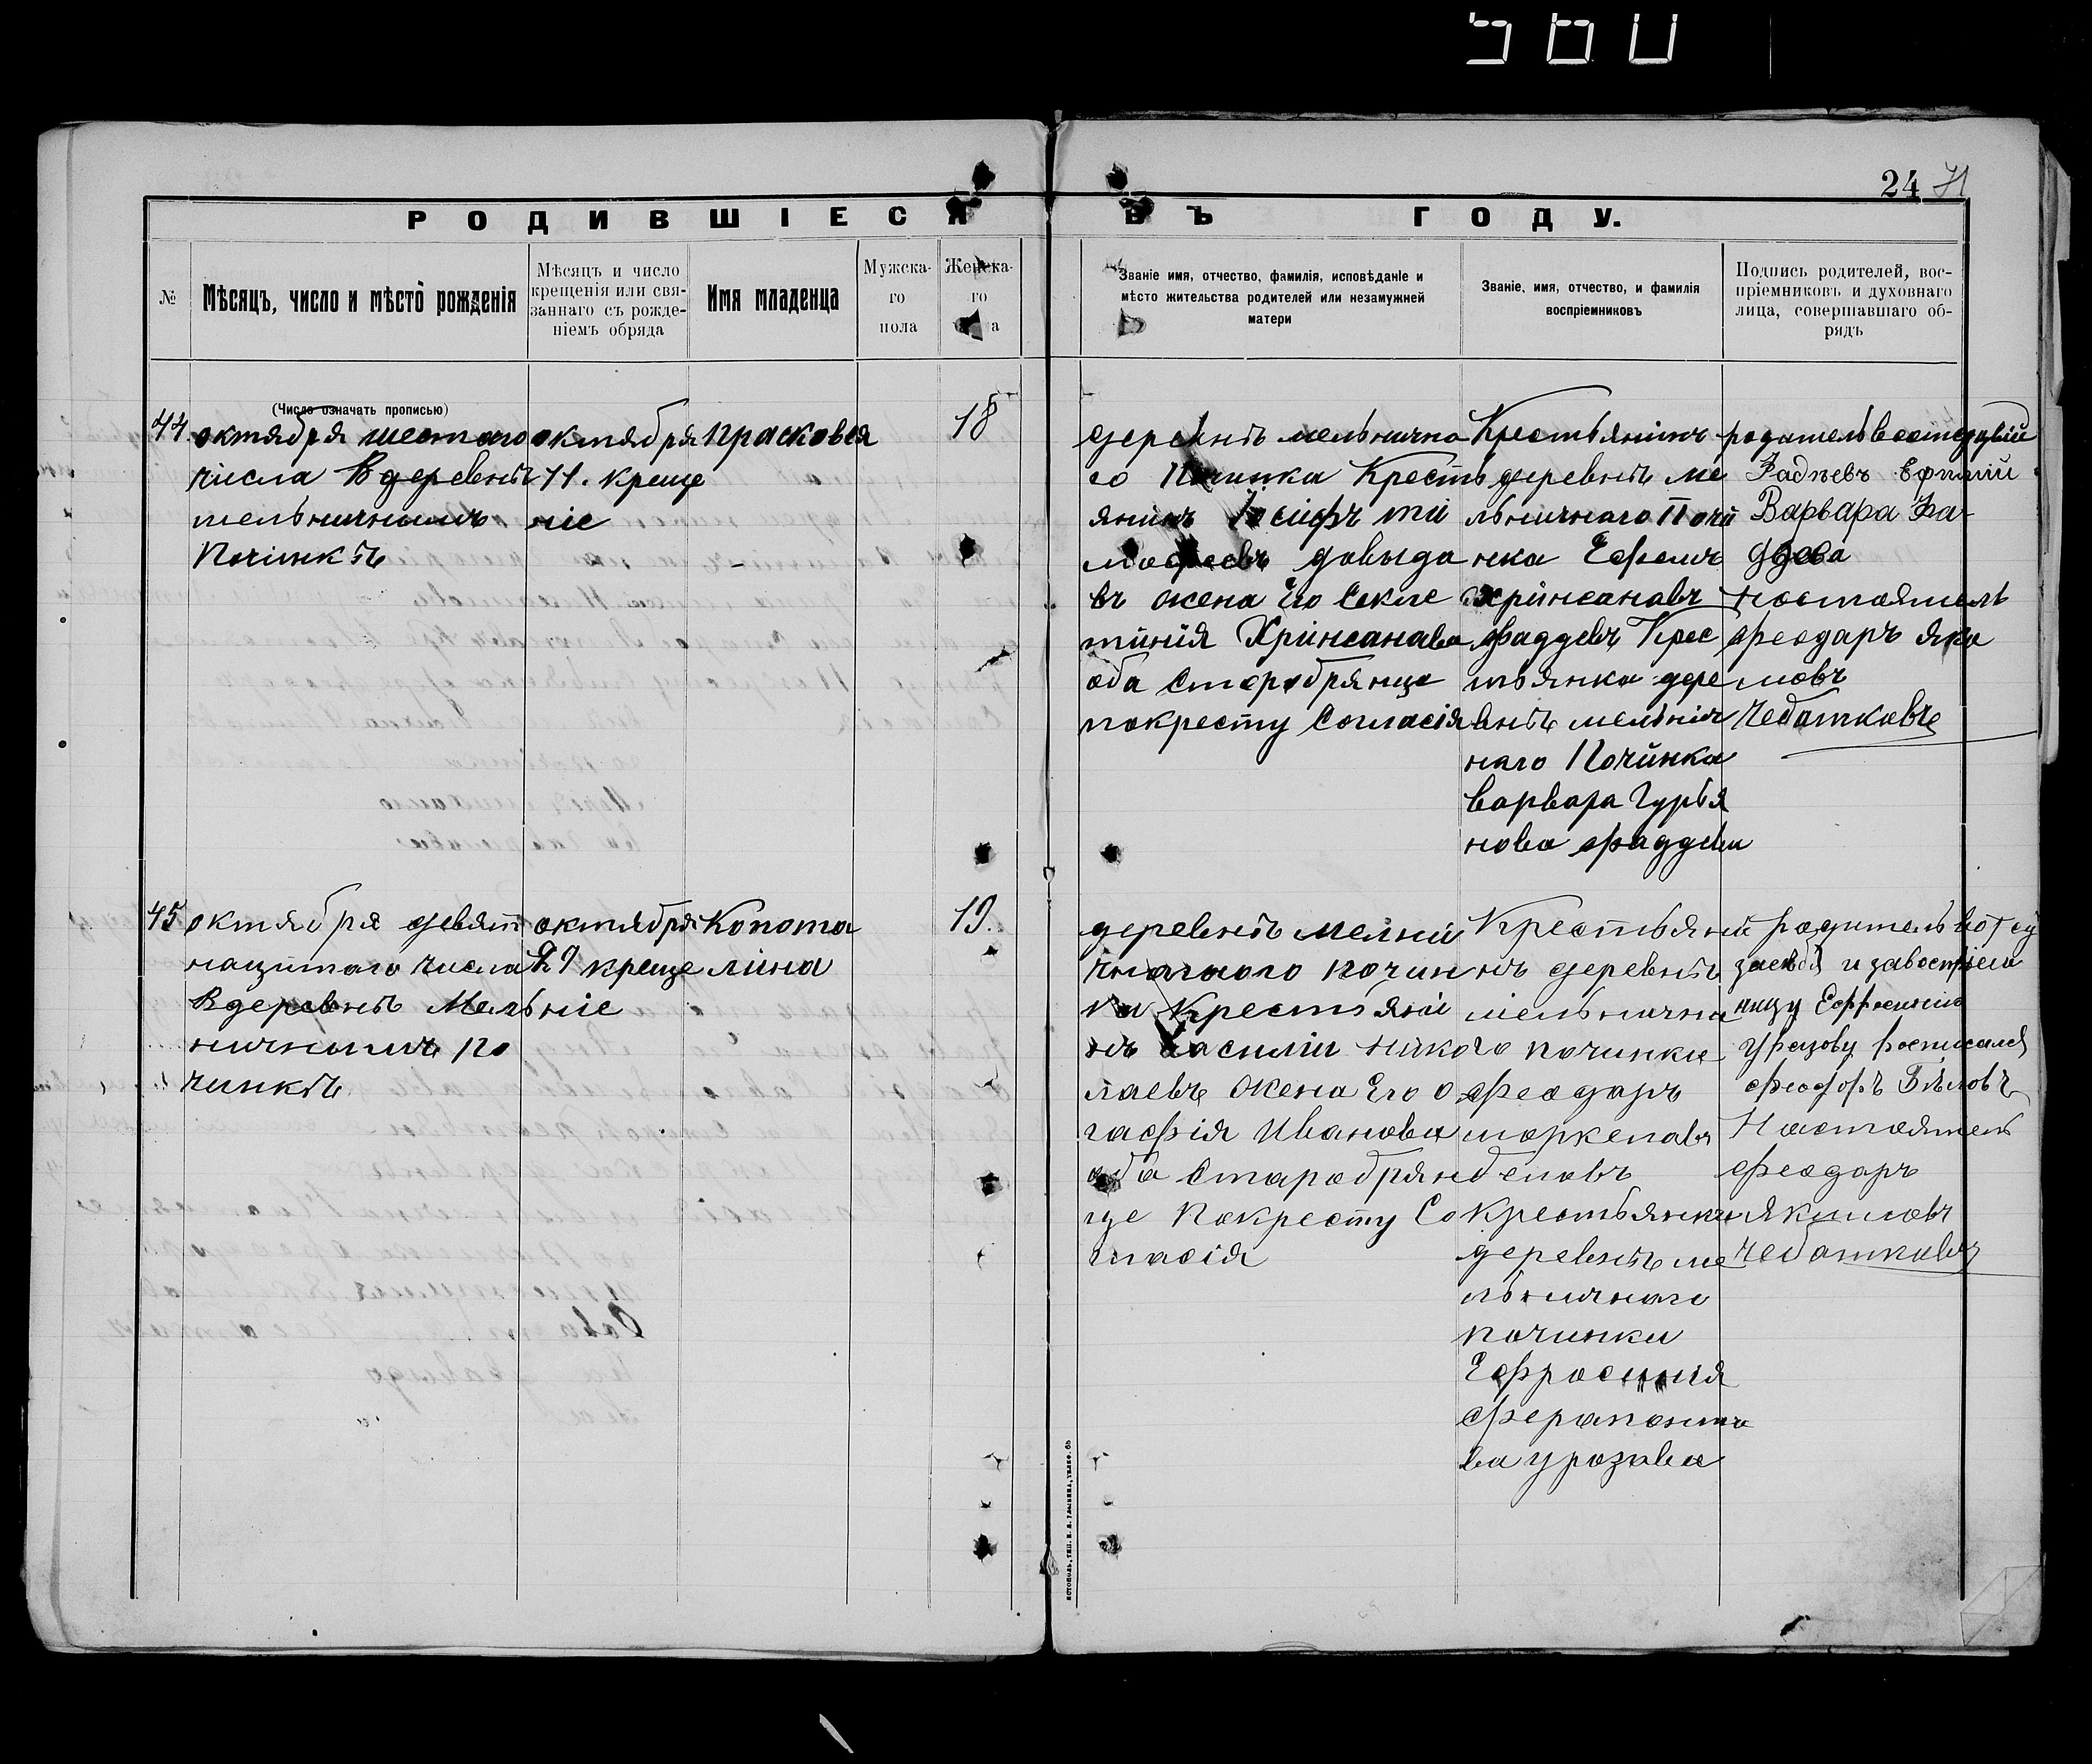 24 71
РОДИВШІЕСЯ ВЪ ГОДУ.
№
Мѣсяцъ, число и мѣсто рожденія
Мѣсяцъ и число
крещенія или свя-
заннаго съ рожде-
ніемъ обряда
Имя младенца
Мужска-
го
пола
Женска-
го
Званіе имя, отчество, фамилія, исповѣданіе и
мѣсто жительства родителей или незамужней
матери
Званіе, имя, отчество, и фамилія
воспріемниковъ
Подпись родителей, вос-
пріемниковъ и духовнаго
лица, совершавшаго об-
рядъ
(Число означать прописью)
44.
октября шестаго
числа В деревнѣ
мельничномъ
Починкѣ
октября
11. креще
ніе
Прасковея
18
деревнѣ мельнично
го Починка Кресть
янинъ Іосифъ ти
мофеевъ давыдо
въ жена Его Секле
тинія Хрінсанава
оба старобрянце
покресту Согласія
Крестьянинъ
деревнѣ ме
льничнаго Почи
нка Ефемъ
Хрінсанавъ
фаддевъ Крес
тьянка дере
внѣ мельнич
наго Починка
варвара Гурья
нова фаддева
родитель
Фадѣевъ Ефимій
Варвара Фа-
дѣева
Настоятель
феодаръ яки
мовъ
Чебатковъ
45
октября девят
нацитаго числа
В деревнѣ Мель
ничномъ по
чинкѣ
октября
29 креще
ніе
Копото
лина
19.
деревнѣ мелни
чнагаго почин
ка Крестьяни
нъ Василіи нико
лаевъ Жена Его о
гафія Иванова
оба старобрян
це Покресту Со
гласія
Крестьяни
нъ деревнѣ
мельнична
го починка
феодаръ
маркелавъ
беловъ
Крестьянка
деревнѣ ме
льничнаго
починки
Ефросиния
ферапонто
ва уразава
родитель
засебя и завоспріем
ницу Ефросинію
Уразову росписался
феодоръ Бѣловъ
Настоятель
феодаръ
якимовъ
Чебатковъ